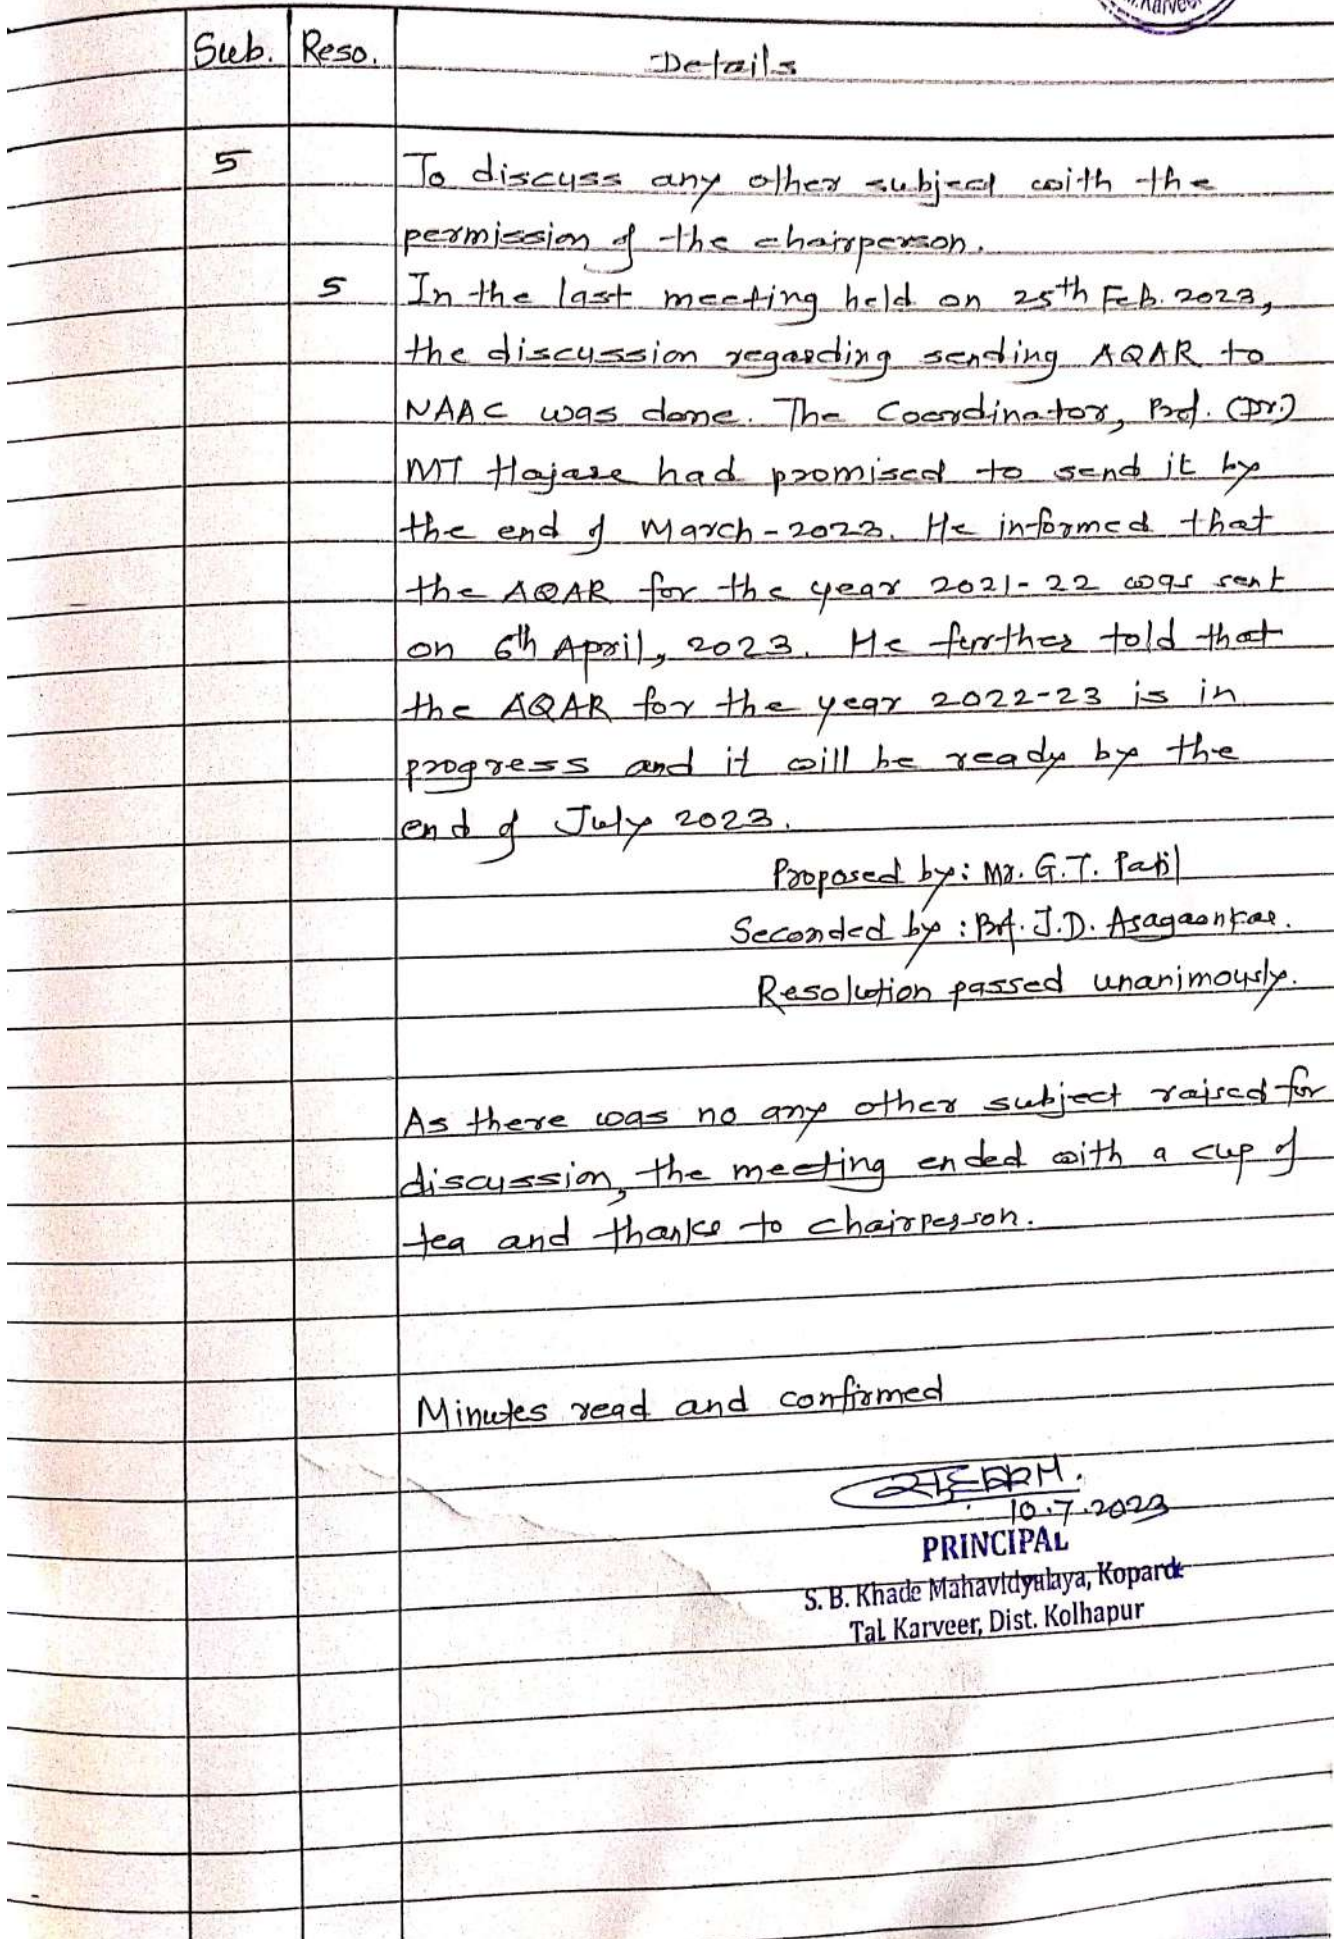 Karveer
Sub. Reso. Details
5 To discuss any other subject with the
permission of the chairperson.
5 In the last meeting held on 25th Feb. 2023,
the discussion regarding sending AQAR to
NAAC was done. The Coordinator, Prof. (Dr.)
MT Hajare had promised to send it by
the end of March-2023. He informed that
the AQAR for the year 2021-22 was sent
on 6th April, 2023. He further told that
the AQAR for the year 2022-23 is in
progress and it will be ready by the
end of July 2023.
Proposed by: Mr. G.T. Patil
Seconded by: Prof. J.D. Asagaonkar.
Resolution passed unanimously.
As there was no any other subject raised for
discussion, the meeting ended with a cup of
tea and thanks to chairperson.
Minutes read and confirmed
10.7.2023
PRINCIPAL
S. B. Khade Mahavidyalaya, Koparde
Tal Karveer, Dist. Kolhapur